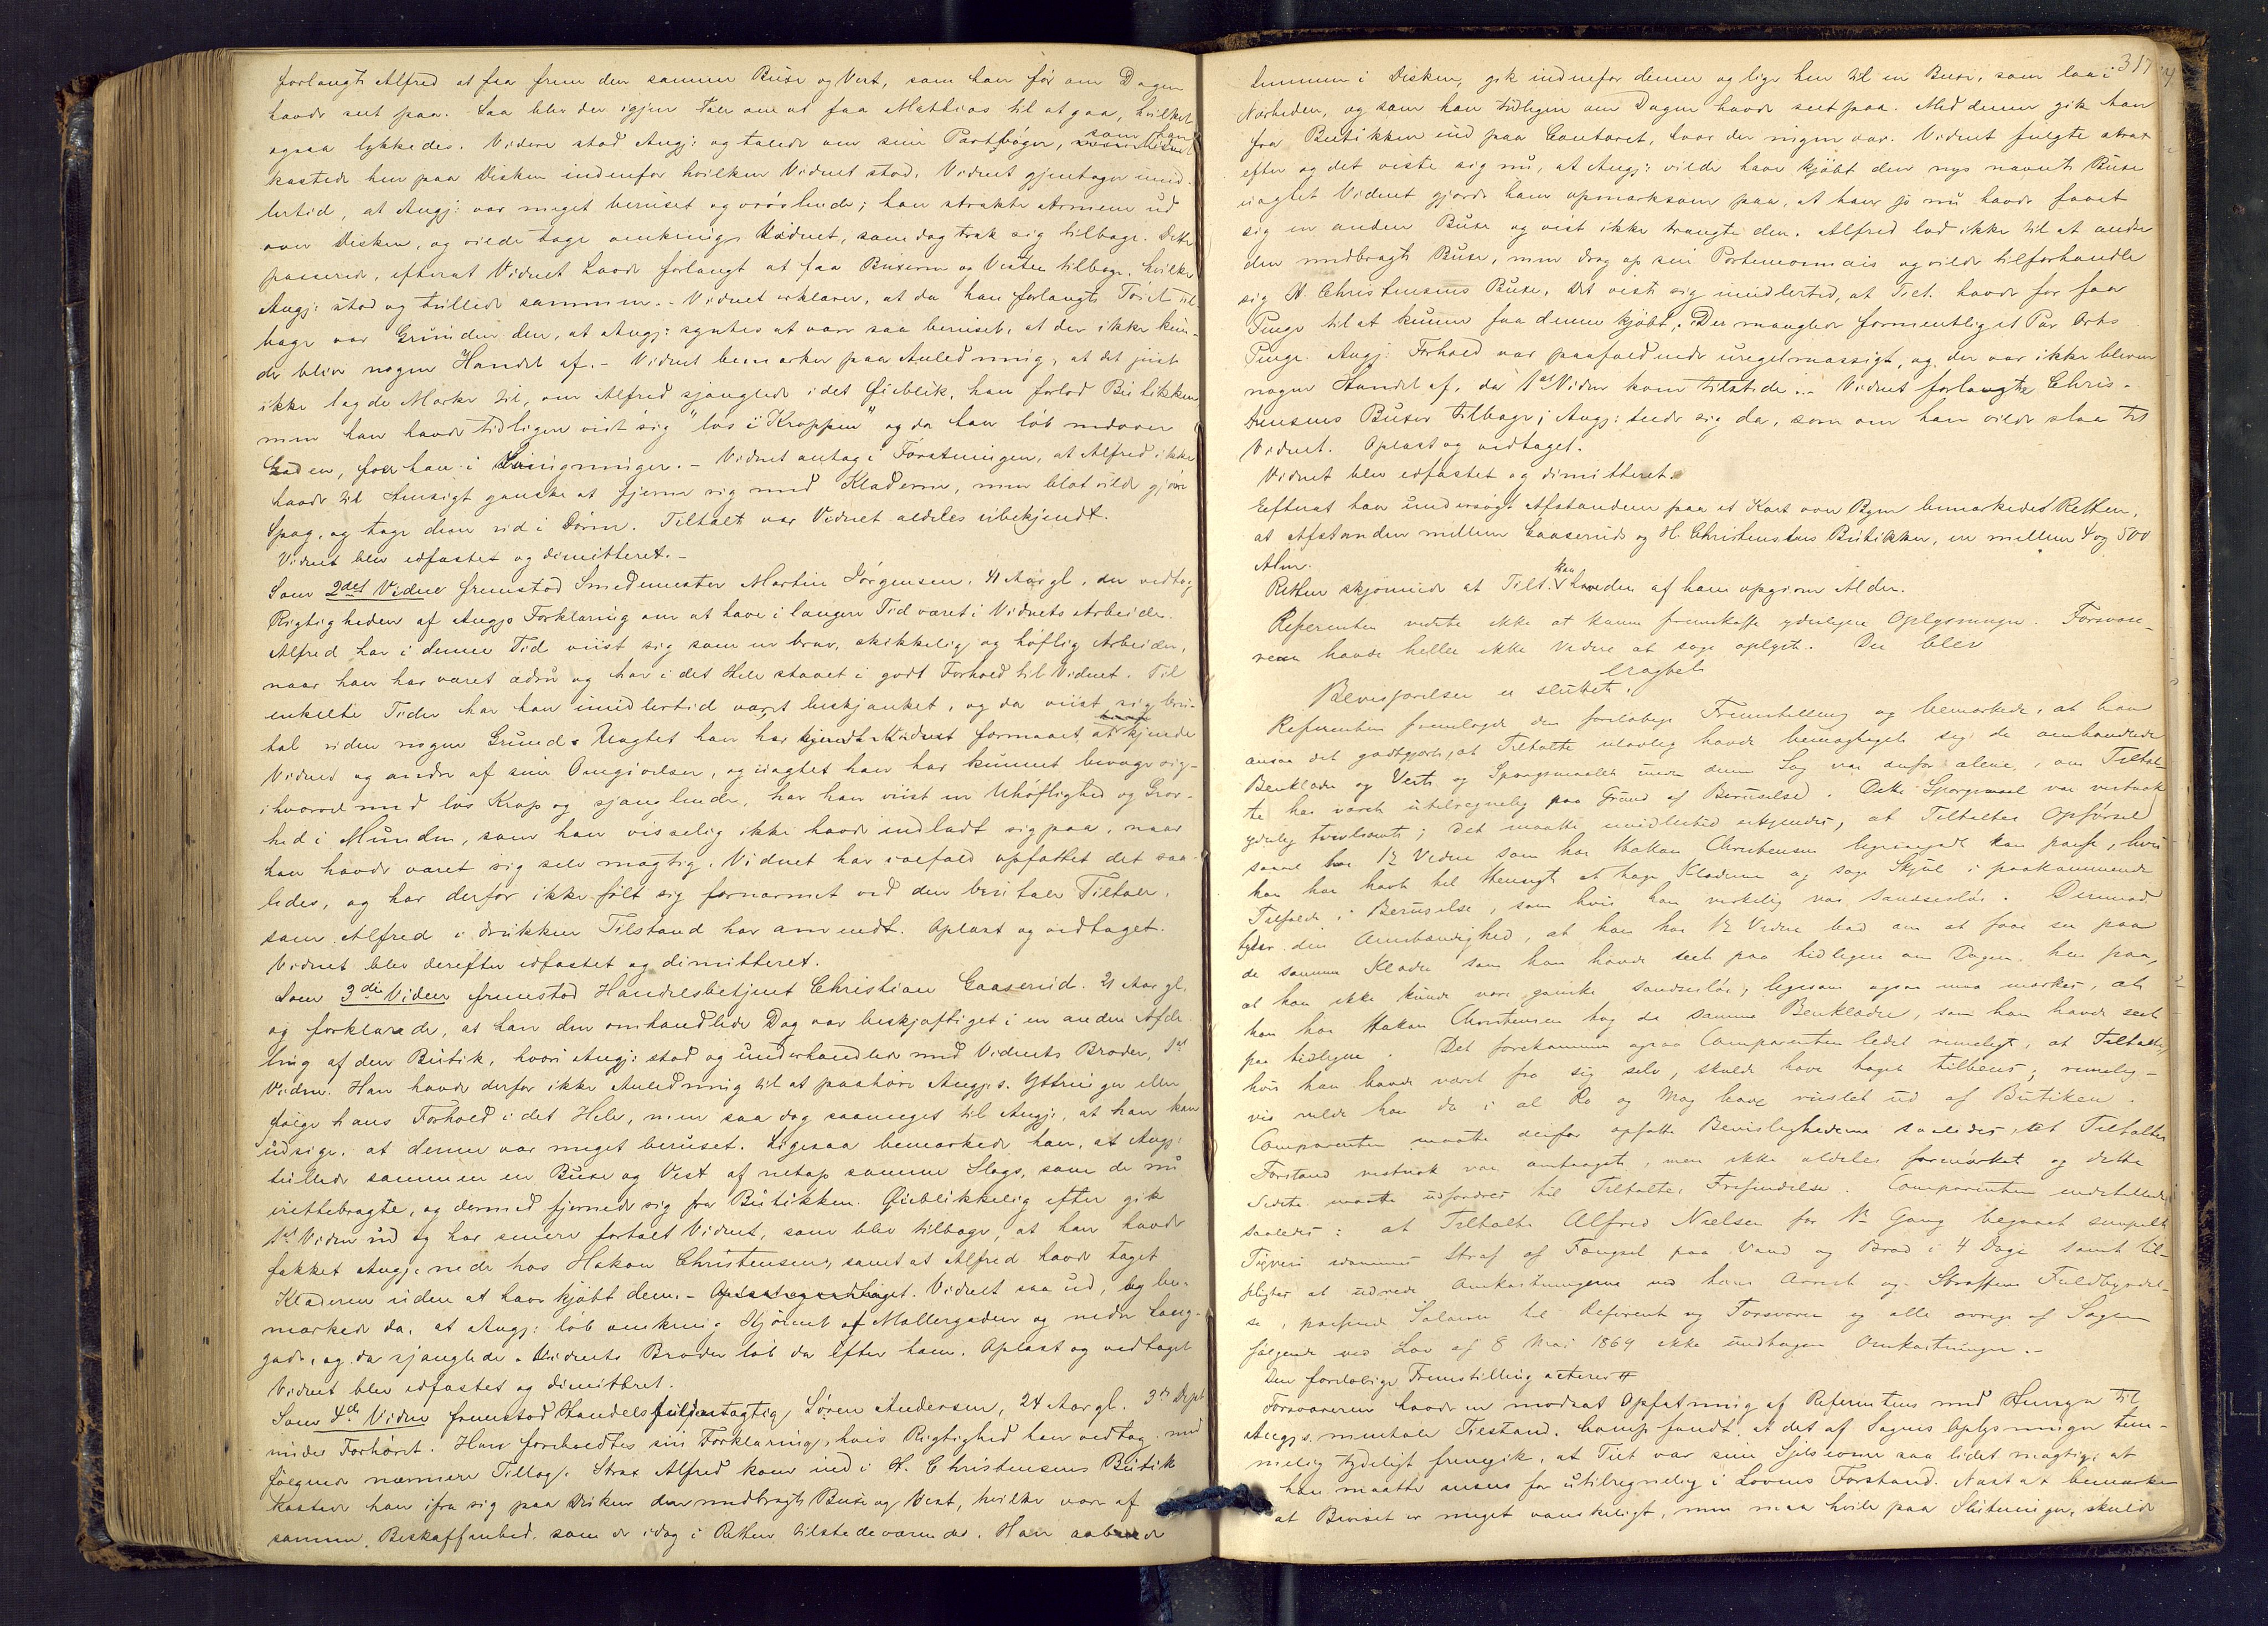 forlangte Alfred at faa frem den samme Buxe og Vest, som han før om Dagen
havde seet paa. Saa blev der igjen Tale om at faa Mathias til at gaa, hvilket
ogsaa lykkedes. Videre stod Angj: og talede om sine Partbøger, som han
kastede hen paa Disken indenfor hvilken Vidnet stod. Vidnet gjentager imid-
lertid, at Angj: var meget beruset og ; han strakte Armene ud
over Disken, og vilde tage omkring Vidnet, som dog trak sig tilbage. Dette
passerede, efterat Vidnet havde forlangt at faa Buxerne og Vesten tilbage, hvilke
Angj: stod og tullede sammen. - Vidnet erklærer, at da han forlangte Tøiet til-
bage var Grunden den, at Angj: syntes at være saa beruset, at der ikke kun-
de blive nogen Handel af. - Vidnet bemærker paa Anledning, at det just
ikke lagde Mærke til, om Alfred sjanglede i det Øieblik, han forlod Butikken
men han havde tidligere viist sig "løs i Kroppen" og da han løb nedover
Gaden, foer han i Slingninger. - Vidnet antog i Førstningen, at Alfred ikke
havde til Hensigt ganske at fjerne sig med Klæderne, men blot vilde gjøre
Spøg, og tage dem ud i Døren. Tiltalte var Vidnet aldeles ubekjendt.
Vidnet blev edfæstet og dimitteret. -
Som 2det Vidne fremstod Smedemester Martin Jørgensen, 41 Aar gl, der vedtog
Rigtigheden af Angjs Forklaring om at have i længere Tid været i Vidnets Arbeide.
Alfred har i denne Tid viist sig som en brav, skikkelig og høflig Arbeider,
naar han har været ædru og har i det Hele staaet i godt Forhold til Vidnet. Til
enkelte Tider har han imidlertid været beskjænket, og da viist sig bru-
tal uden nogen Grund. Uagtet han har formaaet at kjende
Vidnet og andre af sine Omgivelser, og uagtet han har kunnet bevæge sig -
ihvorvel med løs Krop og sjanglende, har han viist en Uhøflighed og Grov-
hed i Munden, som han visselig ikke havde indladt sig paa, naar
han havde været sig selv mægtig. Vidnet har ialfald opfattet det saa-
ledes, og har derfor ikke følt sig fornærmet ved den brutale Tiltale,
som Alfred i drukken Tilstand har anvendt. Oplæst og vedtaget.
Vidnet blev derefter edfæstet og dimitteret.
Som 3die Vidne fremstod Handelsbetjent Christian Gaaserud. 21 Aar gl.
og forklarede, at han den omhandlede Dag var beskjæftiget i en anden Afde-
ling af den Butik, hvori Angj: stod og underhandlede med Vidnets Broder, 1st
Vidne. Han havde derfor ikke Anledning til at paahøre Angjs. Yttringer eller
følge hans Forhold i det Hele, men saa dog saameget til Angj:, at han kan
udsige, at denne var meget beruset. Ligesaa bemærkede han, at Angj:
tullede sammen en Buxe og Vest af netop samme Slags, som de nu
irettebragte, og dermed fjernede sig fra Butikken. Øieblikkelig efter gik
1st Vidne ud og har senere fortalt Vidnet, som blev tilbage, at han havde
fakket Angj: nede hos Hakon Christensen, samt at Alfred havde taget
Klæderne uden at have kjøbt dem. - Oplæst og vedtaget. Vidnet saa ud, og be-
mærkede da, at Angj: løb omkring Hjørnet af Møllergaden og nedre Lang-
gade, og da sjanglede. Vidnets Broder løb da efter ham. Oplæst og vedtaget
Vidnet blev edfæstet og dimitteret.
Som 4de Vidne fremstod Handelsfuldmægtig Søren Andersen, 24 Aar gl. 3de Dept
under Forhøret. Ham foreholdtes sin Forklaring, hvis Rigtighed han vedtog med
følgende nærmere Tillæg. Strax Alfred kom ind i H. Christensens Butik
kastede han ifra sig paa Disken den medbragte Buxe og Vest, hvilke vare af
samme Beskaffenhed som de idag i Retten tilstedeværende. Han aabnede
317
Lemmen i Disken, gik indenfor denne og lige hen til en Buxe, som laa i
Nærheden, og som han tidligere om Dagen havde seet paa. Med denne gik han
fra Butikken ind paa Contoret, hvor der ingen var. Vidnet fulgte strax
efter og det viste sig nu, at Angj: vilde have kjøbt den nys nævnte Buxe
uagtet Vidnet gjorde ham opmærksom paa, at han jo nu havde faaet
sig en anden Buxe og vist ikke trængte den. Alfred lod ikke til at ændse
den medbragte Buxe, men drog op sin Portemonnais og vilde tilforhandle
sig H. Christensens Buxe. Det viste sig imidlertid, at Tilt. havde for faa
Penge til at kunne faa denne kjøbt. Der manglede formentlig et Par Orts
Penge. Angj: Forhold var paafaldende uregelmæssigt, og der var ikke bleven
nogen Handel af, da 1st Vidne kom tilstede. - Vidnet forlangte Chris-
tensens Buxer tilbage; Angj: tede sig da, som om han vilde slaa til
Vidnet. Oplæst og vedtaget.
Vidnet blev edfæstet og dimitteret.
Efterat have undersøgt Afstanden paa et Kart over Byen bemærkedes Retten,
at Afstanden mellem Gaaseruds og H. Christensens Butikker, er mellem 4 og 500
Alen.
Retten skjønnede at Tilt. kan have den af ham opgivne Alder.
Referenten vidste ikke at kunne fremskaffe yderligere Oplysninger. Forsvare-
ren havde heller ikke videre at søge oplyst. Der blev
eragtet
Bevisførelsen er sluttet.
Referenten fremlagde den foreløbige Fremstilling og bemærkede, at han
ansaa det godtgjort, at Tiltalte ulovlig havde bemægtiget sig de omhandlede
Benklæder og Vest og Spørgsmaalet under denne Sag var derfor alene, om Tiltal-
te har været utilregnelig paa Grund af Beruselse. Dette Spørgsmaal var vistnok
yderlig tvivlsomt; det maatte imidlertid erkjendes, at Tiltaltes Opførsel
saavel hos 1ste Vidne som hos Hakon Christensen ligesaagodt kan passe, hvis
han har havt til Hensigt at tage Klæderne og søge Skjul i paakommende
Tilfælde i Beruselse, som hvis han virkelig var sandsesløs. Dermod
tyder den Omstændighed, at han hos 1ste Vidne bad om at faae se paa
de samme Klæder som han havde seet paa tidligere om Dagen, hen paa,
at han ikke kunde være ganske sandsesløs; ligesom ogsaa maa mærkes, at
han hos Hakon Christensen tog de samme Benklæder, som han havde seet
paa tidligere. Det forekommer ogsaa Comparenten lidet rimeligt, at Tiltalte,
hvis han havde været fra sig selv, skulde have taget tilbens; rimelig-
vis vilde han da i al Ro og Mag have ruslet ud af Butiken.
Comparenten maatte derfor opfatte Bevislighederne saaledes, at Tiltaltes
Forstand vistnok var omtaaget, men ikke aldeles formørket og dette
sidste maatte udfordres til Tiltaltes Frifindelse. Comparenten indstillede
saaledes: at Tiltalte Alfred Nielsen for 1ste Gang begaaet simpelt
Tyveri idømmes Straf af Fængsel paa Vand og Brød i 4 Dage samt til-
pligtes at udrede Omkostningerne ved hans Arrest og Straffens Fuldbyrdel-
se, passende Salarier til Referent og Forsvarer og alle øvrige af Sagen
følgende ved Lov af 8 Mai 1869 ikke undtagne Omkostninger. -
Den foreløbige Fremstilling acteres #
Forsvareren havde en modsat Opfatning af Referentens med Hensyn til
Angjs. mentale Tilstand. Comp. fandt, at det af Sagens Oplysninger tem-
melig tydeligt fremgik, at Tilt. var sine Sjelsevner saa lidet mægtig, at
han maatte ansees for utilregnelig i Lovens Forstand. Næst at bemærke
at Beviset er meget vanskeligt, men maa hvile paa Slutninger, skulde